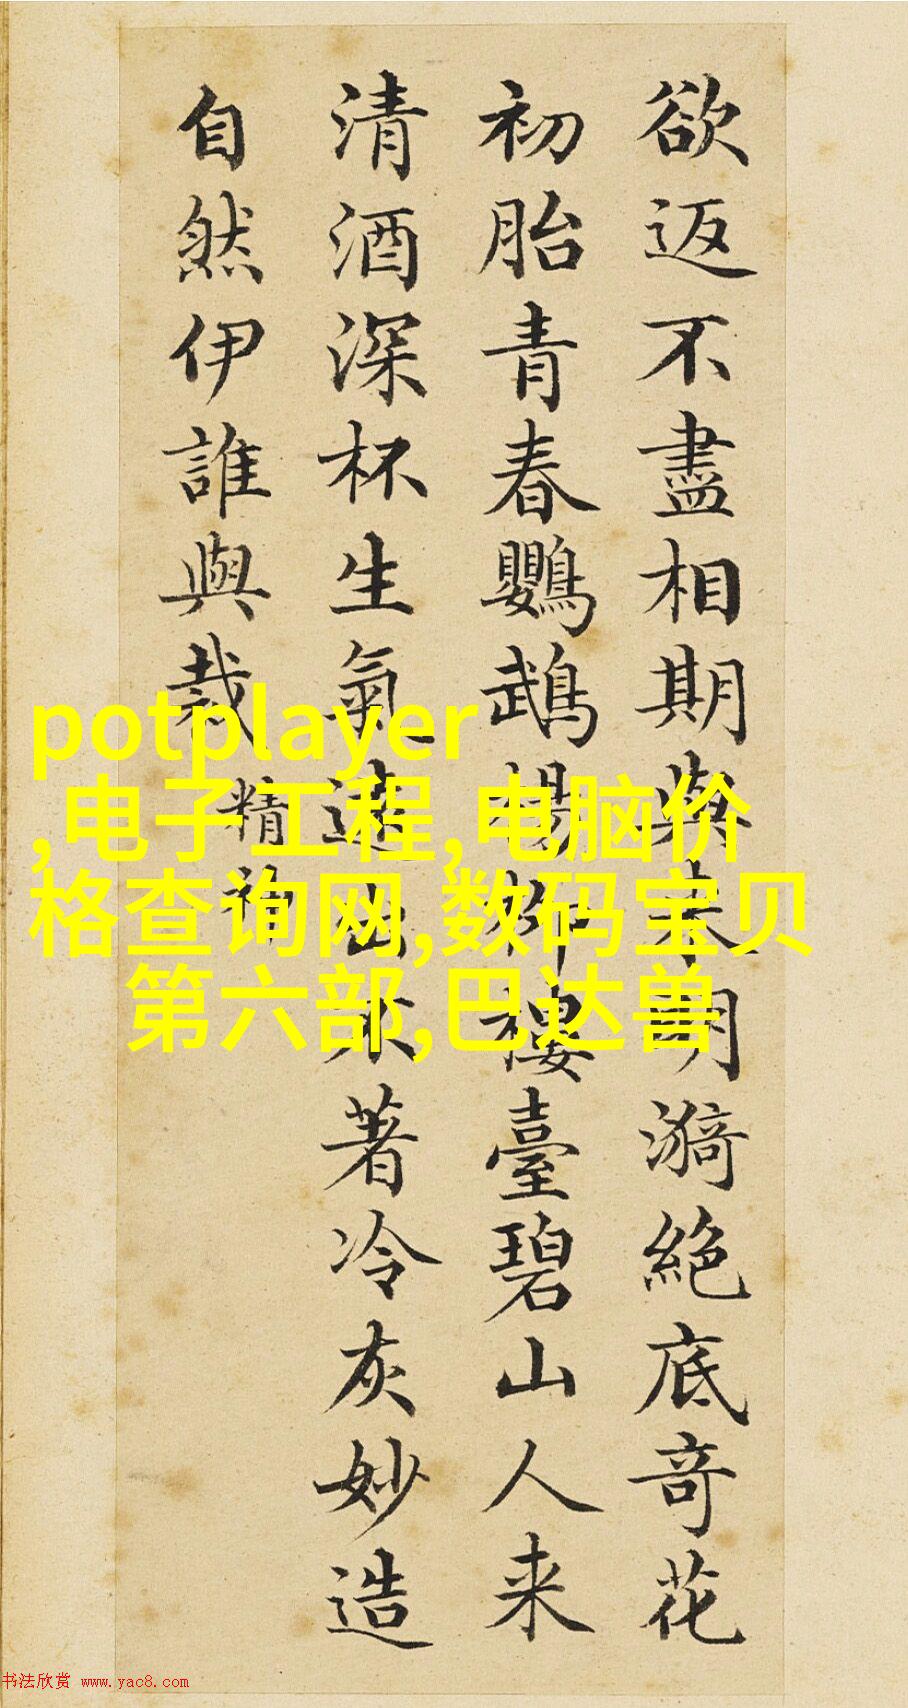 欲返不盡相期與来明漪絕底竒花
初胎青春鸚鵡楊柳樓臺碧山人来
清酒深杯生氣遠出不著冷灰妙造
自然伊誰與裁
精神
potplayer
,电子工程,电脑价
格查询网,数码宝贝
第六部,巴达兽
书法欣赏 www.yac8.com